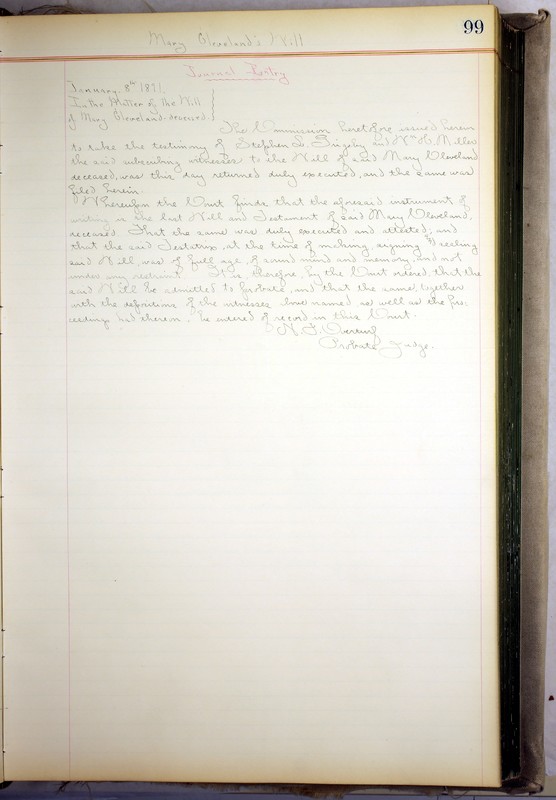 99
Mary Cleveland's Will
Journal Entry
January 8th 1871.
In the Matter of the Will
of Mary Cleveland. deceased.
The Commission heretofore issued herein
to take the testimony of Stephen S. and Wm H. Miller
the said subscribing witnesses to the Will of said Mary Cleveland
deceased, was this day returned duly executed, and the same was
filed herein.
Whereupon the Court finds that the aforesaid instrument of
writing is the last Will and Testament of said Mary Cleveland.
deceased. That the same was duly executed and attested; and
that the said Testatrix, at the time of making, signing & sealing
said Will, was of full age, of sound mind and memory, and not
under any restraint. It is, therefore, by the Court ordered, that the
said Will be admitted to Probate, and that the same, together
with the depositions of the witnesses above named as well as the pro-
ceedings had thereon, be entered of record in this Court.
Probate Judge.